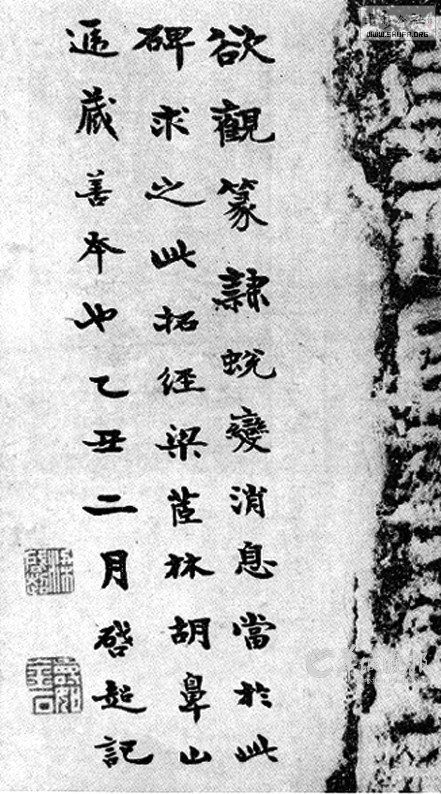 欲觀篆隷蛻變消息當於此
碑求之此拓經梁茝林胡鼻山
遞藏善本也乙丑二月啓超記
WWW.SHUFA.ORG